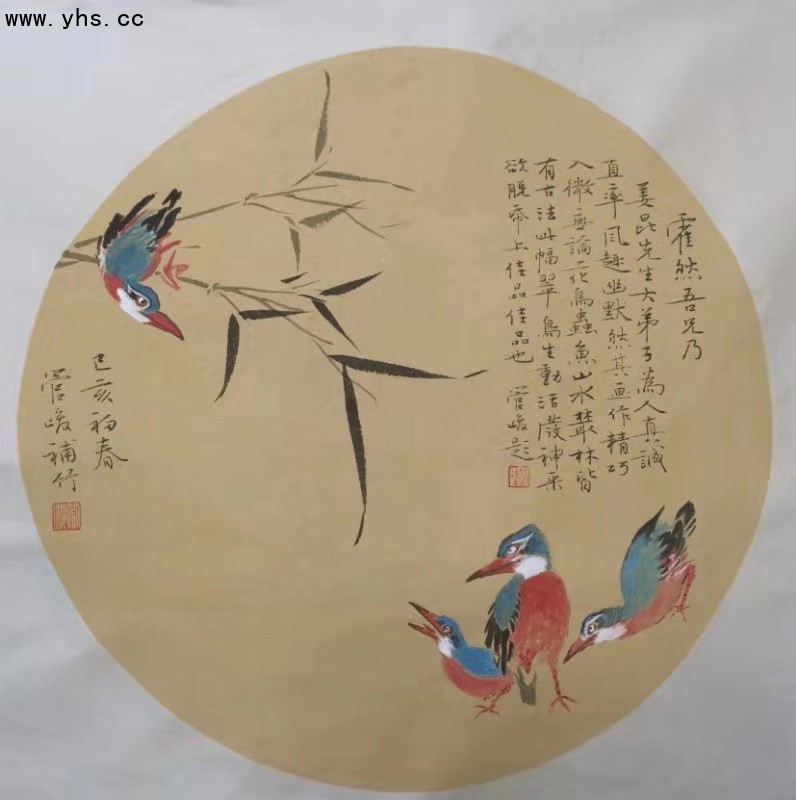 www.yhs.cc
霍然吾兄乃
姜昆先生大弟子為人真誠
直率風趣幽默然其画作精巧
入微無論花鳥蟲魚山水叢林皆
有古法此幅翠鳥生動活潑神采
欲脱紙上佳品佳品也
管峻題
己亥初春
管峻補竹